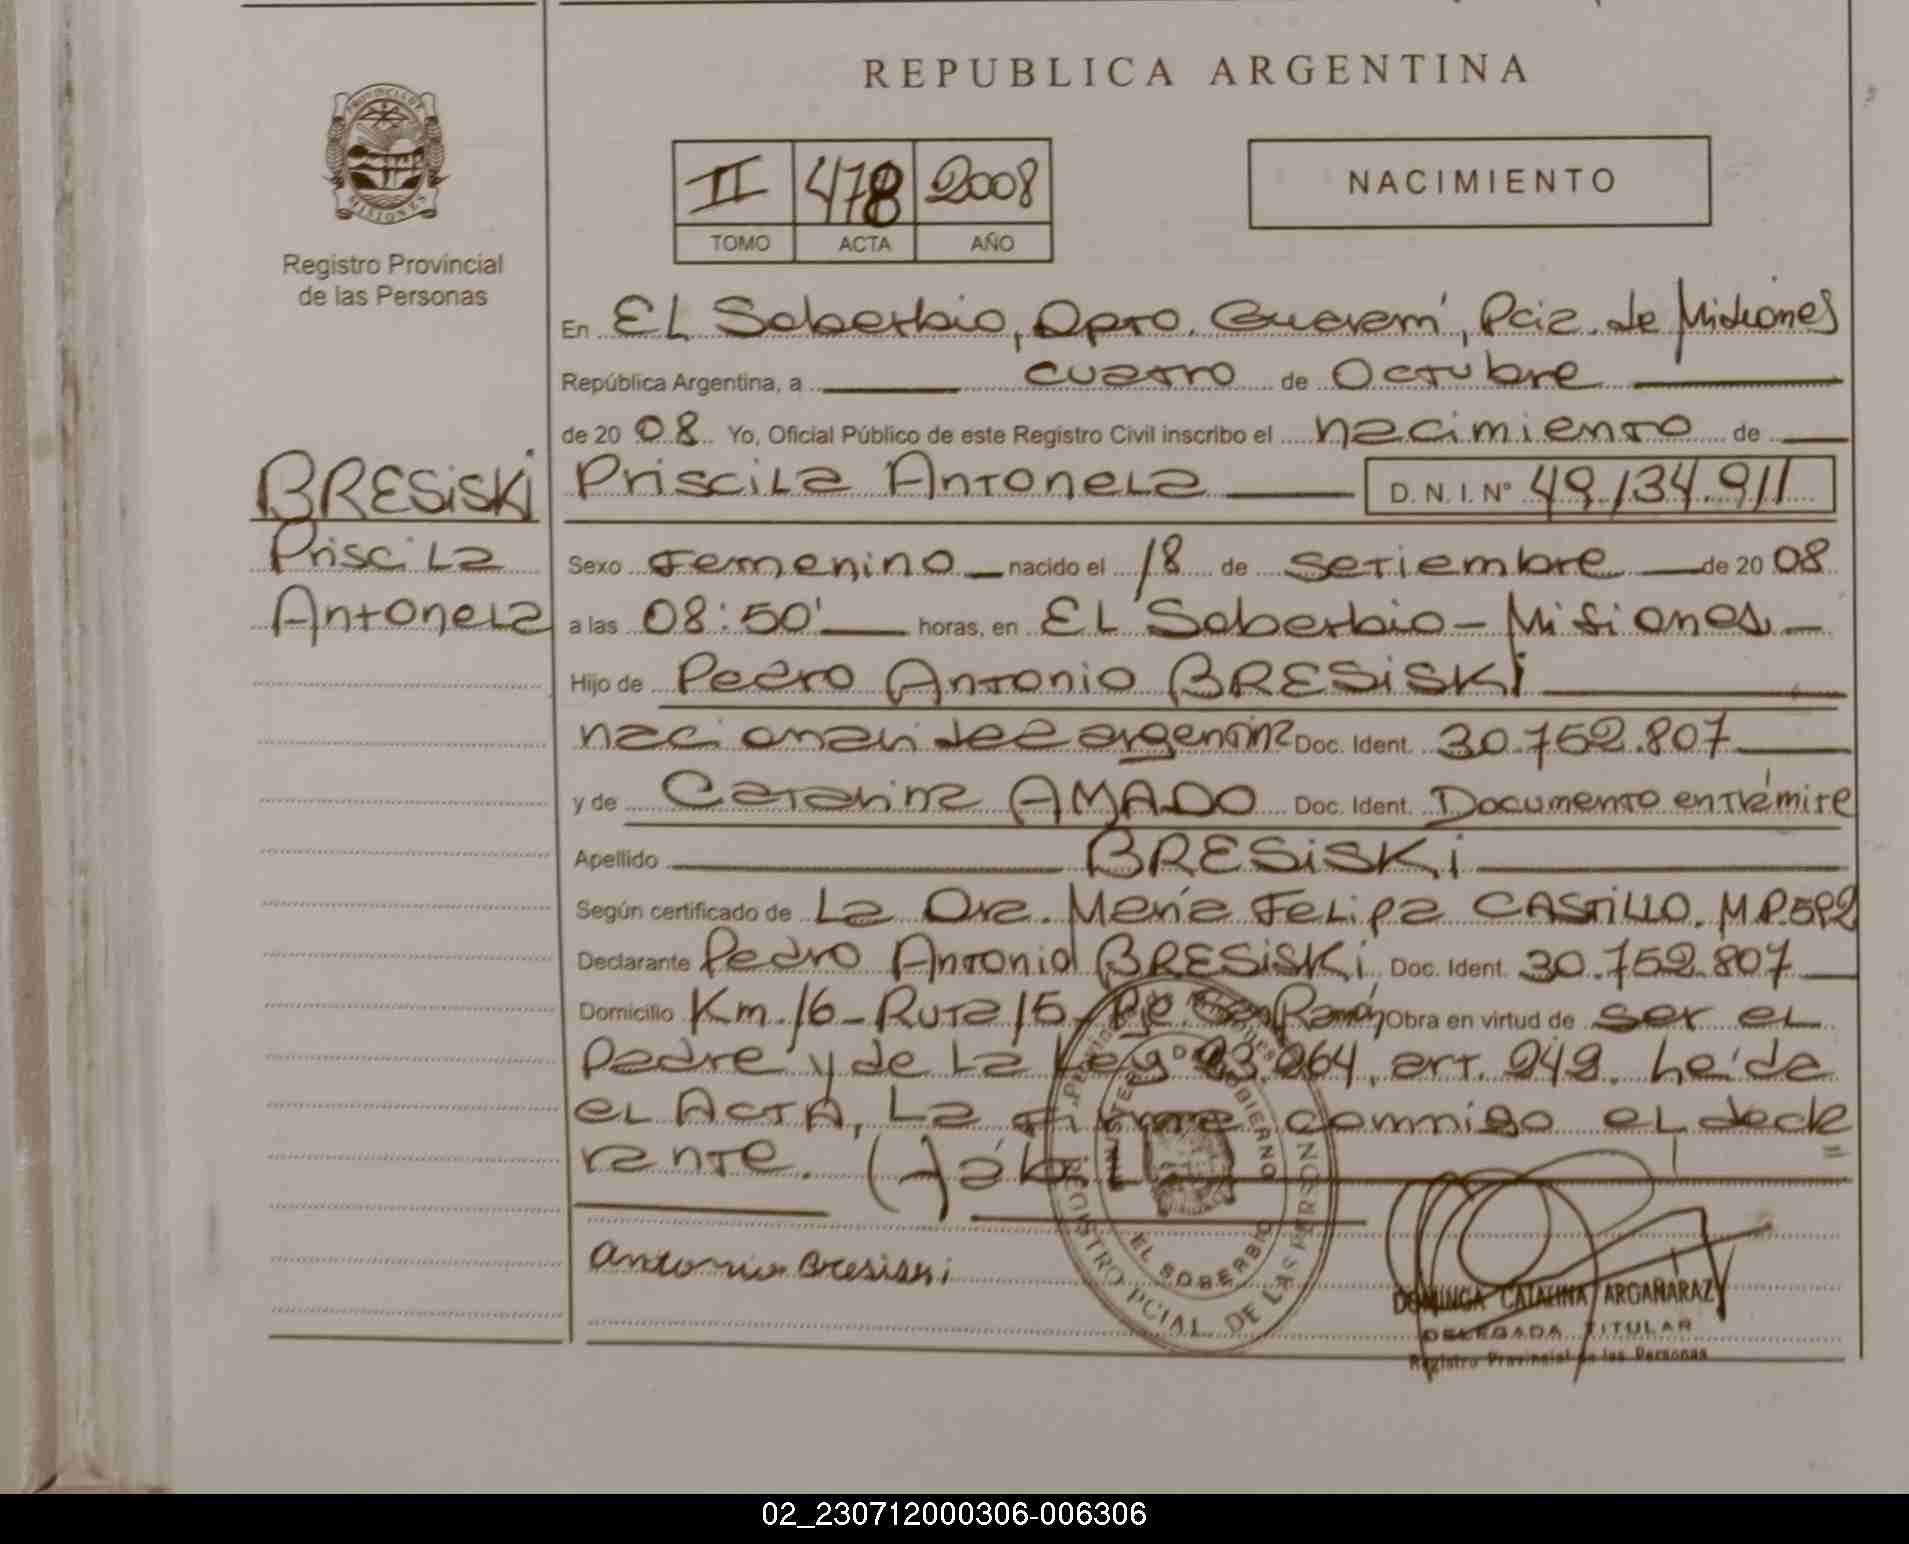 REPUBLICA ARGENTINA
PROVINCIA DE MISIONES
Registro Provincial
de las Personas
II 478 2008
TOMO ACTA AÑO
NACIMIENTO
En EL Soberbio, Dpto. Guaraní, Pcia. de Misiones
República Argentina, a cuatro de Octubre
de 2008 Yo, Oficial Público de este Registro Civil inscribo el nacimiento de
BRESiSKi
Priscila
Antonela
Priscila Antonela D. N. I. Nº 49.134.911
Sexo Femenino nacido el 18 de setiembre de 2008
a las 08:50' horas, en EL Soberbio - Misiones
Hijo de Pedro Antonio BRESiSKi
nacionalidad argentina Doc. Ident. 30.752.807
y de Catalina AMADO Doc. Ident. Documento en trámite
Apellido BRESiSKi
Según certificado de La Dra. María Felipa CASTiLLO. M.P.
Declarante Pedro Antonio BRESiSKi, Doc. Ident. 30.752.807
Domicilio Km. 16 - Ruta 15 - San Ramón Obra en virtud de ser el
Padre y de La Ley 23.264, art. 242. Leída
el ActA, La firma conmigo el decla
rante.
Antonio Bresiski
MINISTERIO DE GOBIERNO
EL SOBERBIO
REGISTRO PCIAL. DE LAS PERSONAS
DOMINGA CATALINA ARGAÑARAZ
DELEGADA TITULAR
Registro Provincial de las Personas
02_230712000306-006306